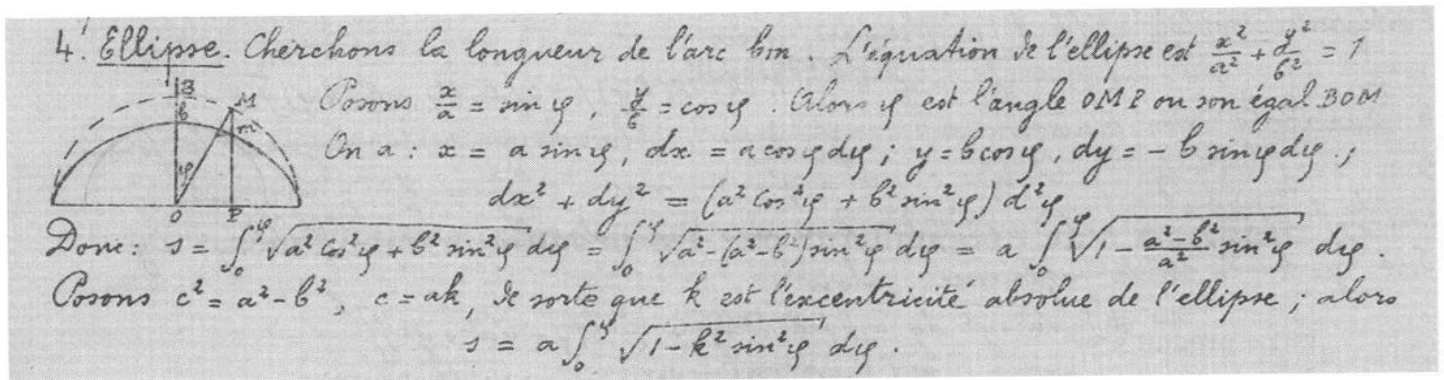 4. Ellipse. Cherchons la longueur de l'arc bm. L'équation de l'ellipse est x²/a² + y²/b² = 1
B
M
b
m
φ
O
P
Posons x/a = sin φ, y/b = cos φ. Alors φ est l'angle OMP ou son égal BOM
On a : x = a sin φ, dx = a cos φ dφ ; y = b cos φ, dy = - b sin φ dφ ;
dx² + dy² = (a² cos² φ + b² sin² φ) d²φ
Donc : s = ∫₀^φ √(a² cos² φ + b² sin² φ) dφ = ∫₀^φ √(a² - (a² - b²) sin² φ) dφ = a ∫₀^φ √(1 - (a² - b²)/a² sin² φ) dφ.
Posons c² = a² - b², c = ak, de sorte que k est l'excentricité absolue de l'ellipse ; alors
s = a ∫₀^φ √(1 - k² sin² φ) dφ.